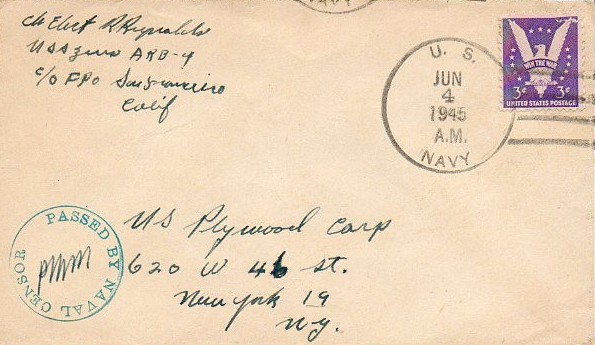 NAVY
Ch Elect R Reynolds
USS Zeus ARB-4
c/o FPO San Francisco
Calif
U. S.
JUN
4
1945
A.M.
NAVY
WIN THE WAR
3¢ 3¢
UNITED STATES POSTAGE
PASSED BY NAVAL CENSOR
US Plywood Corp
620 W 46 st.
New York 19
N.Y.